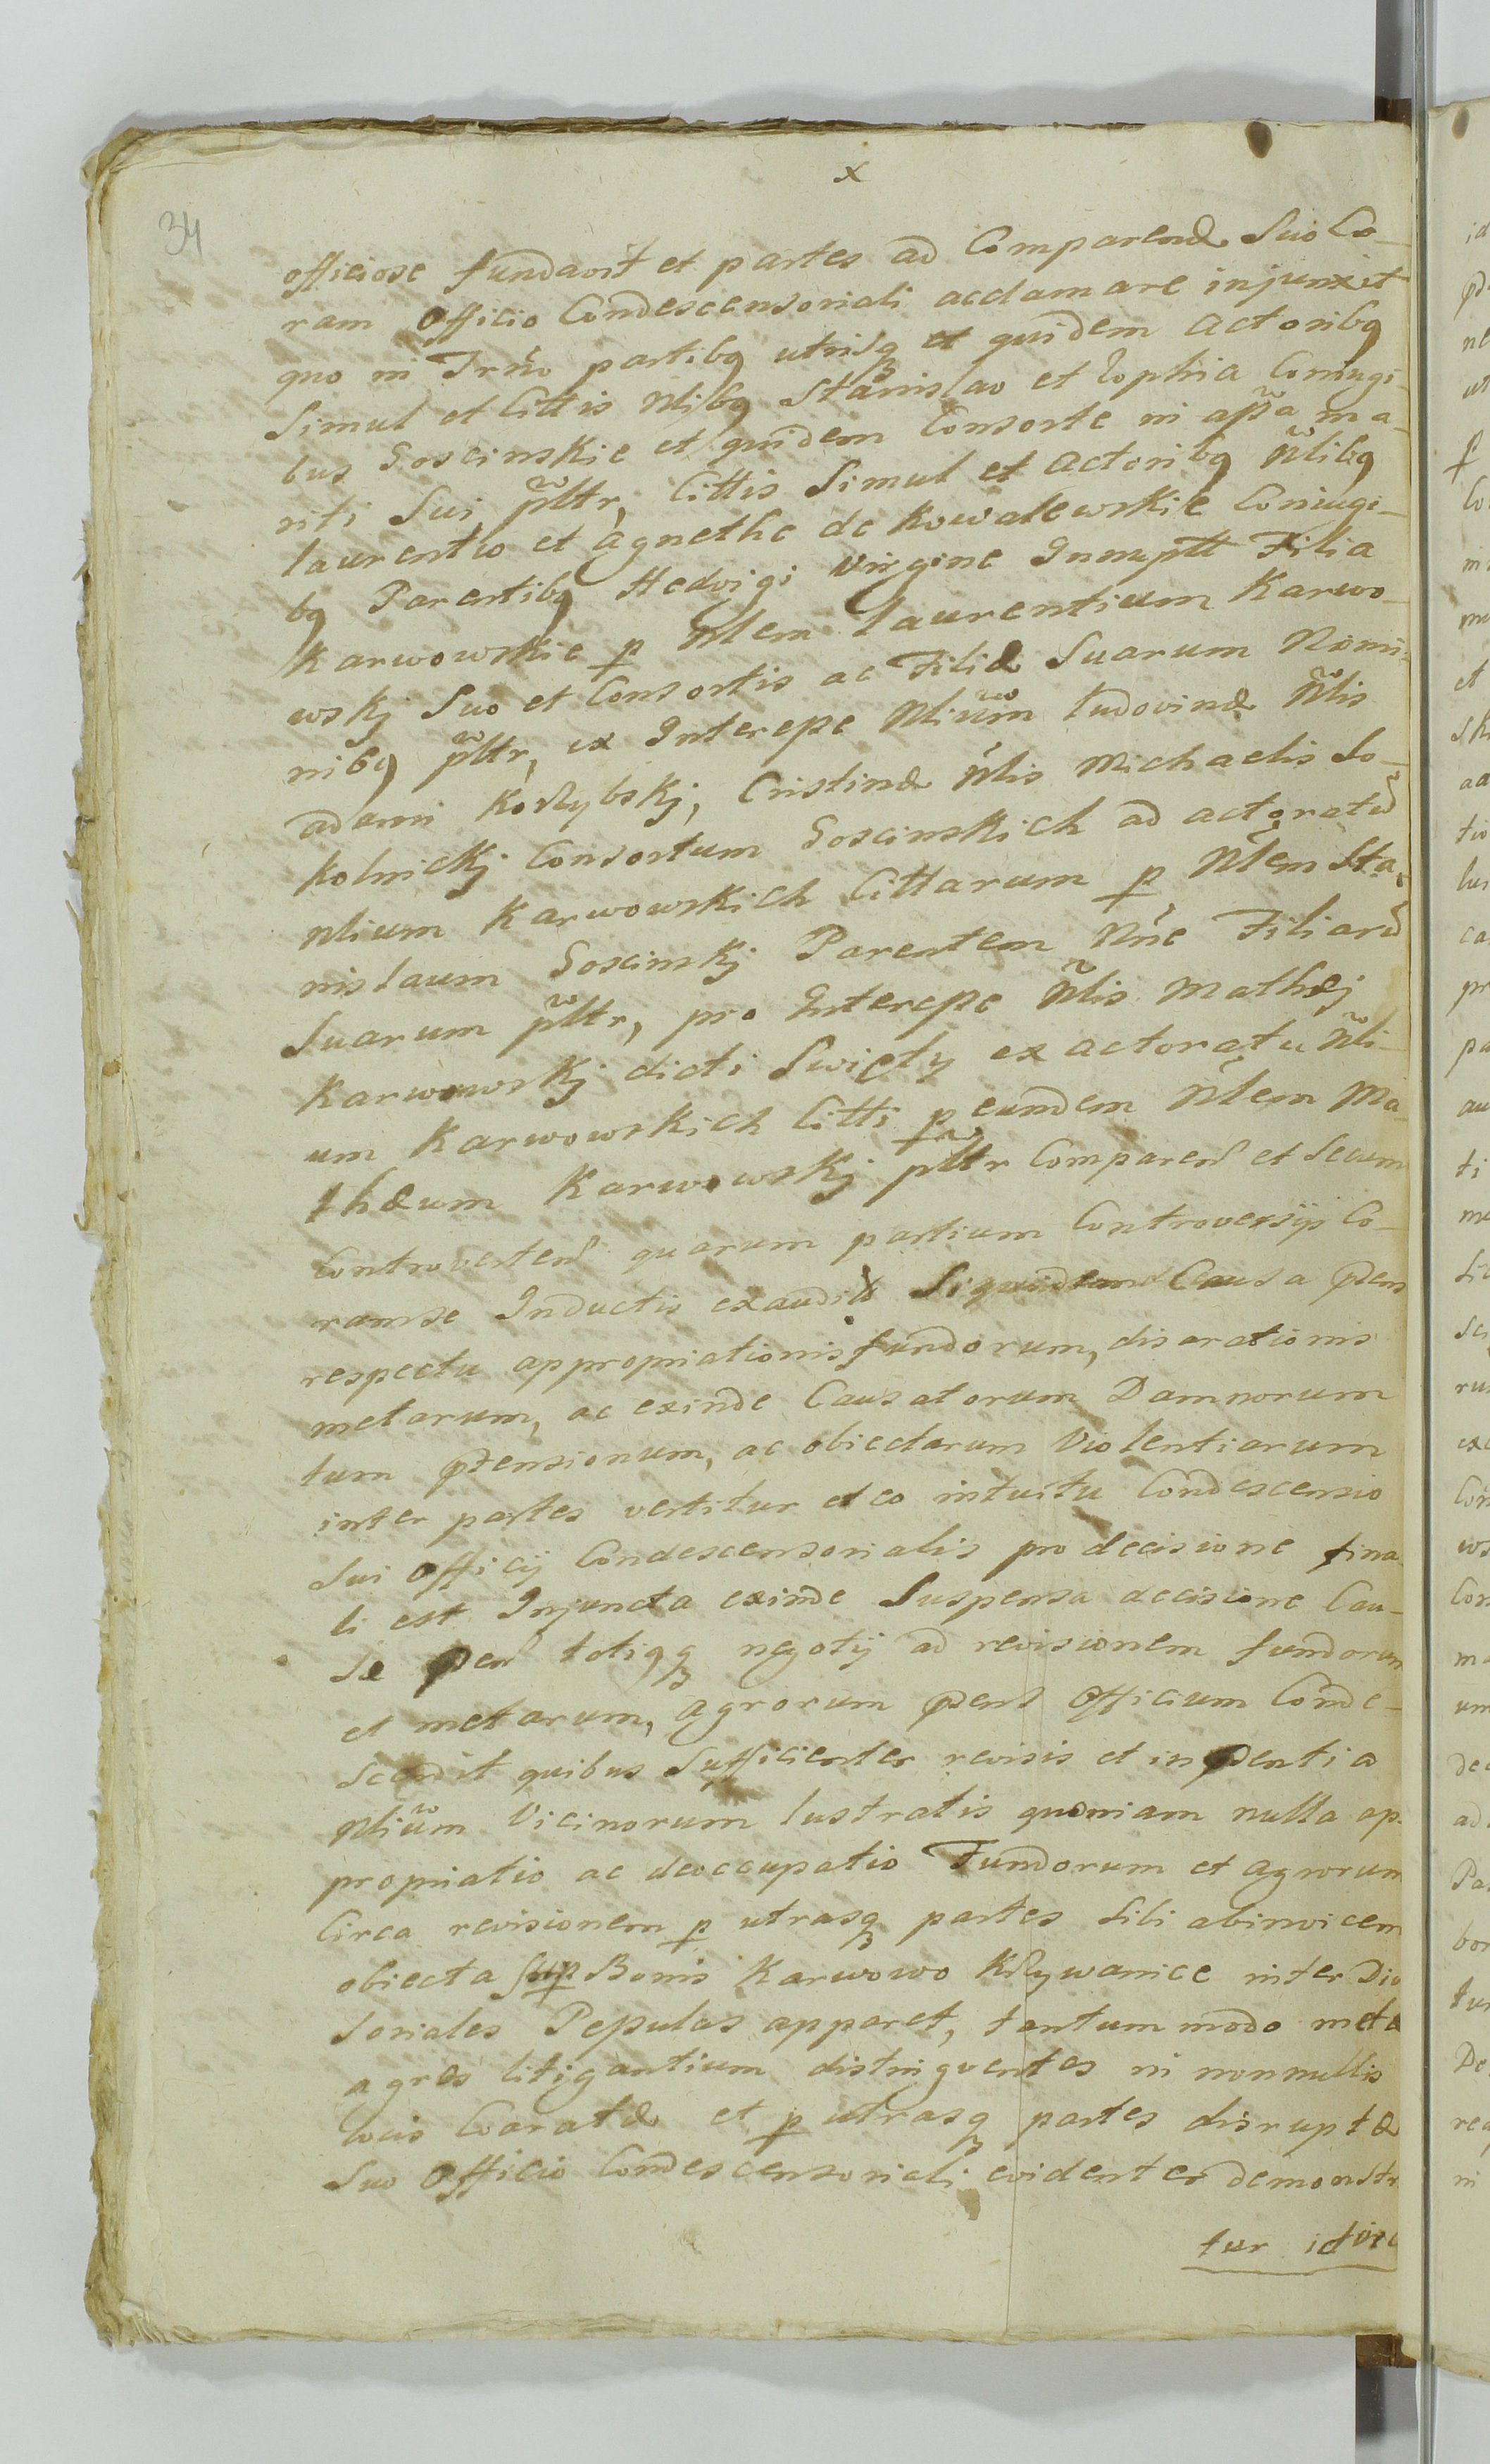 x
34
officiose fundavit et partes ad Comparend Suo Co-
ram Officio Condescensoriali acclamare injunxit
quo in Trño partibq utrisq et quidem Actoribq
Simul et Cittis Nlibq Stanislao et Zophia Coniugi-
bus Goscinskie et quidem Consorte in aßa ma-
riti Sui pltr, Cittis Simul et Actoribq Nlibq
Laurentio et Agnethe de Kowalewskie Coniugi-
bq Parentibq Hedvigi Virgine Innuptt Filia
Karwowskie p Nlem Laurentium Karwo-
wskj Suo et Consortis ac Filiæ Suarum Nomi-
nibq pltr, ex Interepe Nlium Ludovinæ Nlis
Ademi Kossybskj, Cristinæ Nlis Michaelis So-
kolnickj Consortum Goscinskich ad actoratũ
Nlium Karwowskich Cittarum p Nlem Sta-
nislaum Goscinskj Parentem Nne Filiarũ
Suarum pltr, pro Interepe Nlis Mathæj
Karwowskj dicti Swięty ex actoratu Nli-
um Karwowskich Citti p eundem Nlem Ma-
thæum Karwowskj pltr Comparen et Secum
Controverten quarum partium Controversijs Co-
ramse Inductis exauditis Siquidem Causa pñens
respectu appropriationis fundorum, disarationis
metarum, ac exinde Causatorum Damnorum
tum pensionum, ac obiectarum Violentiarum
inter partes vertitur et eo intuitu Condescensio
Sui Officij Condescensorialis pro decisione fina-
li est Injuncta exinde Suspensa decisione Cau-
sæ pñen totiqq negotij ad revisionem fundorum
et metarum, Agrorum pñens Officium Conde-
scendit quibus Sufficienter revisis et in pñentia
Nlium Vicinorum lustratis quoniam nulla ap-
propriatio ac deoccupatio Fundorum et Agrorum
Circa revisionem p utrasq partes Sibi abinvicem
obiecta Sup Bonis Karwowo Krzywanice inter Divi
soriales Pepulas apparet, tantummodo metæ
agros litigantium distinguentes in nonnullis
locis Coaratæ et p utrasq partes disruptæ
Suo Officio Condescensoriali evidenter demonstr
tur idvi